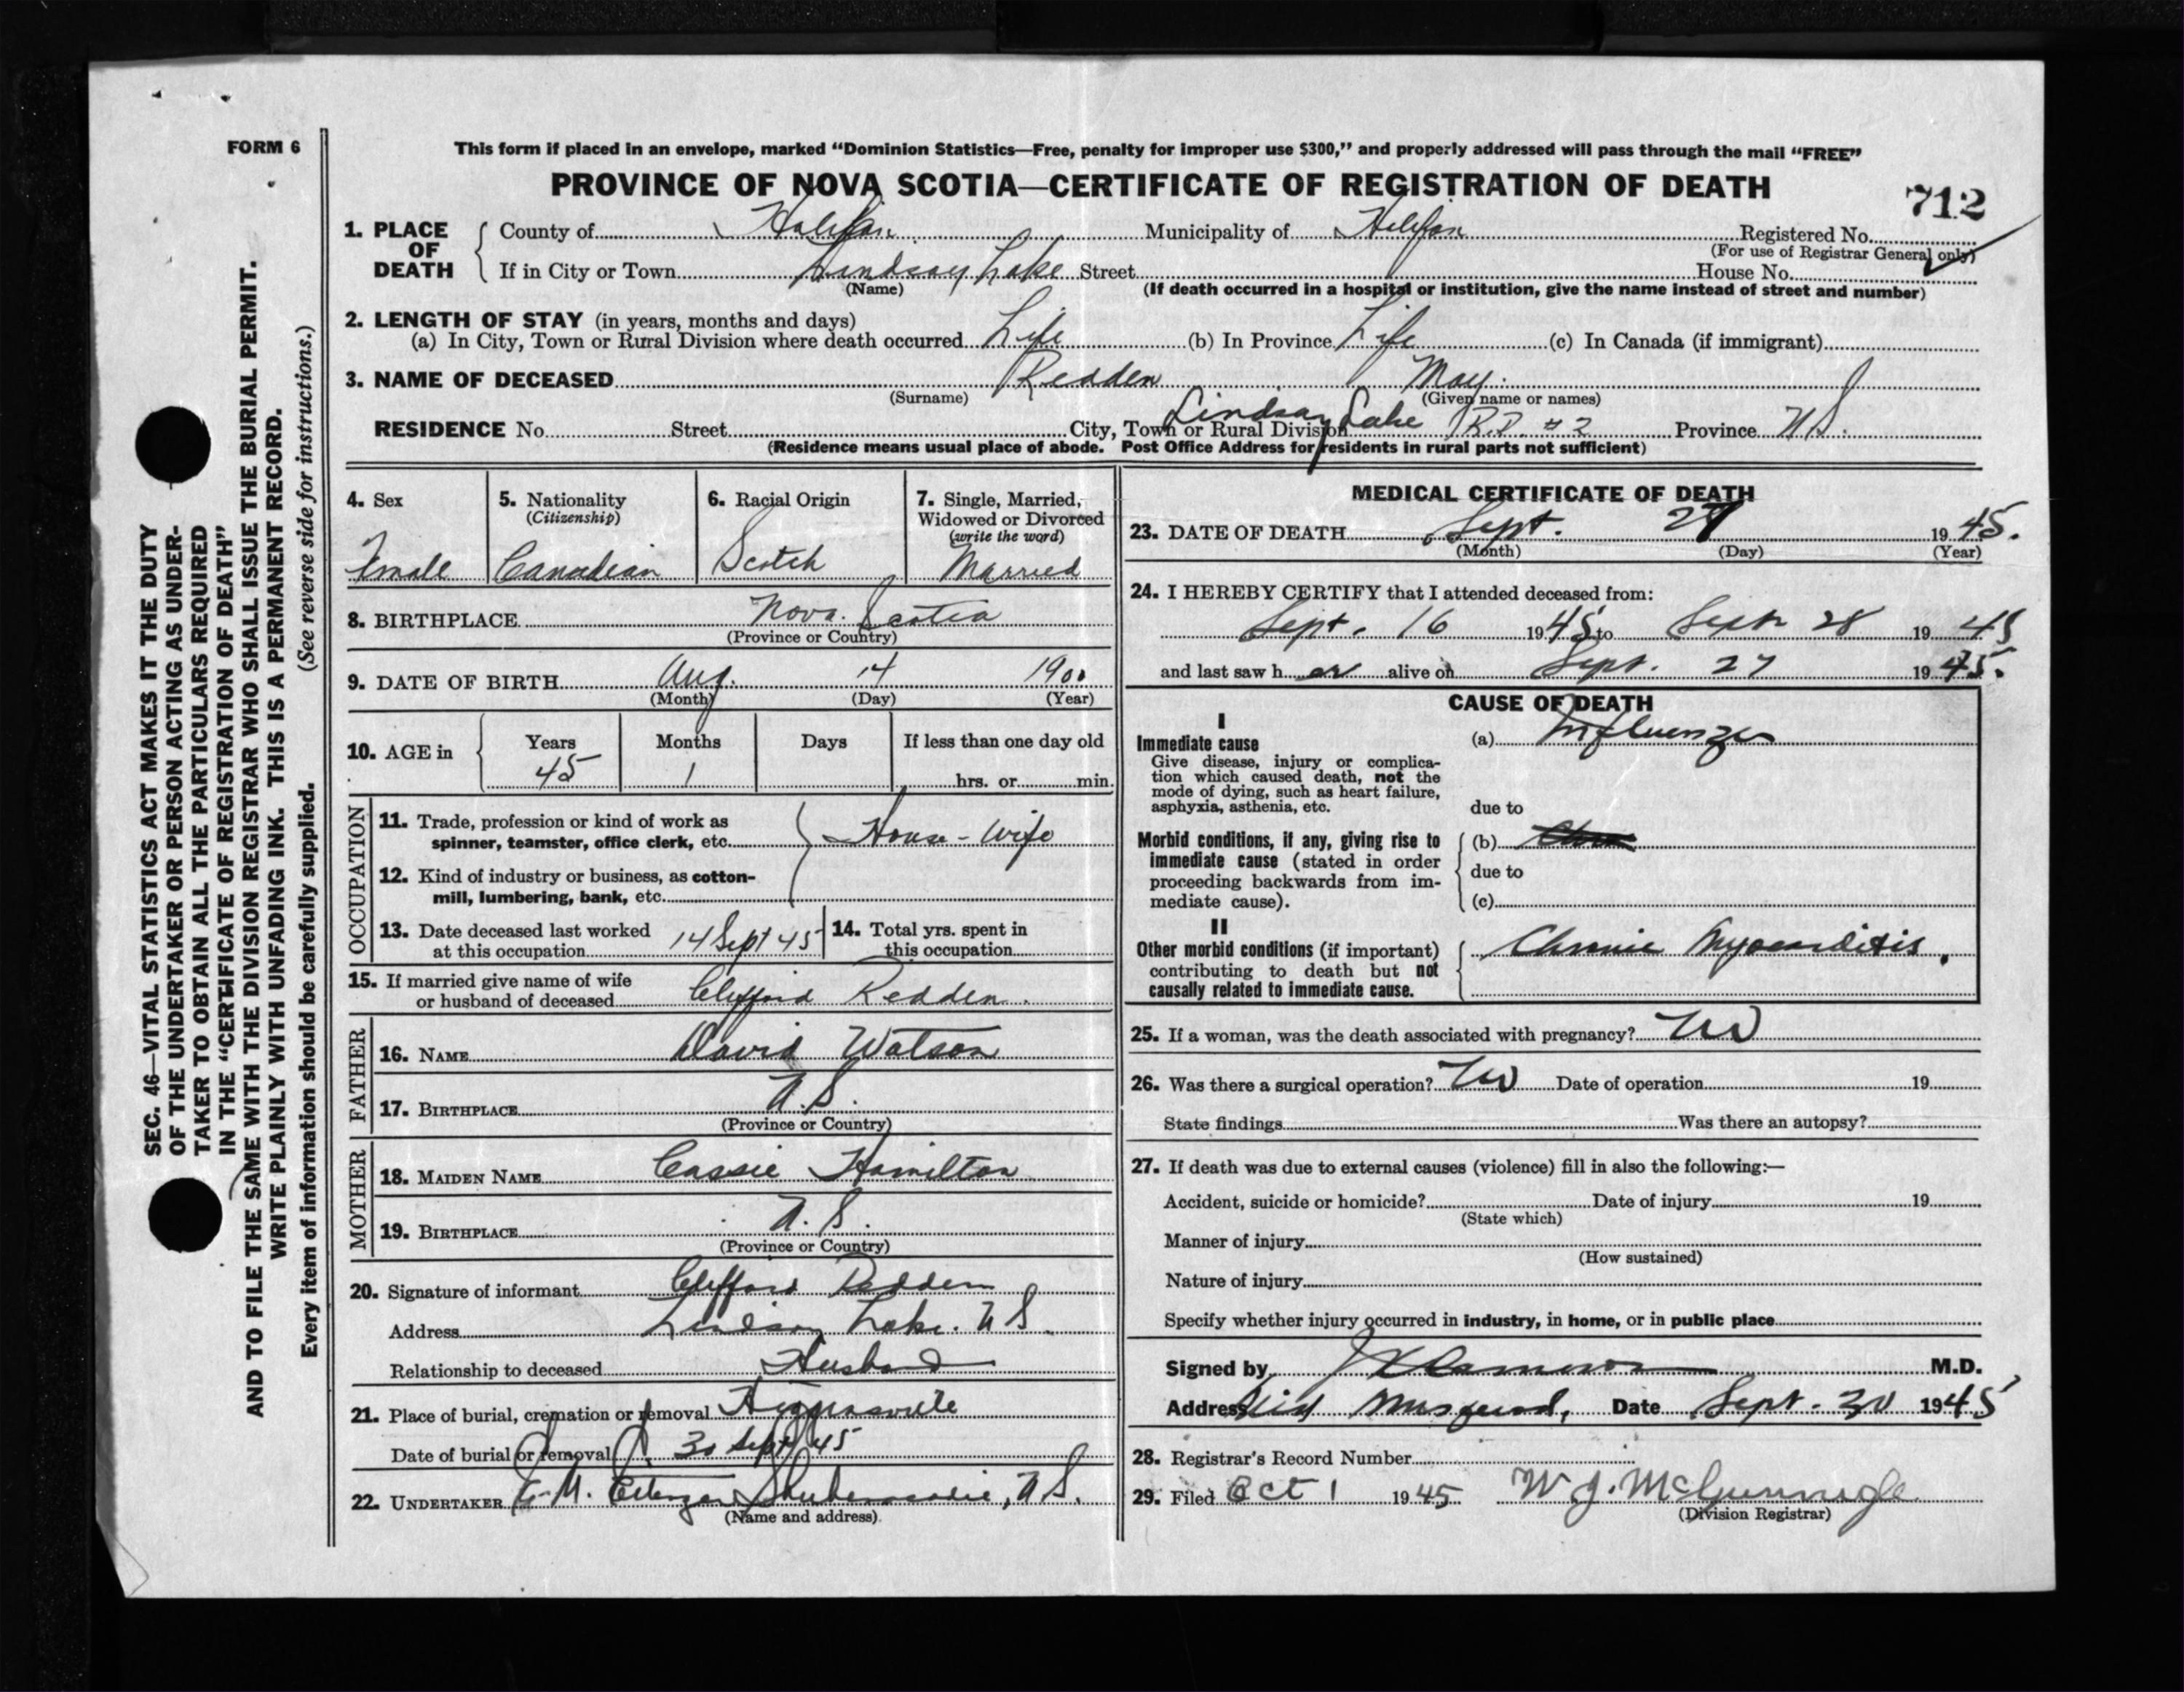 FORM 6
This form if placed in an envelope, marked “Dominion Statistics—Free, penalty for improper use $300,” and properly addressed will pass through the mail “FREE”
PROVINCE OF NOVA SCOTIA—CERTIFICATE OF REGISTRATION OF DEATH
712
1. PLACE OF DEATH County of Halifax Municipality of Halifax Registered No.
(For use of Registrar General only)
If in City or Town Lindsay Lake Street House No.
(Name) (If death occurred in a hospital or institution, give the name instead of street and number)
2. LENGTH OF STAY (in years, months and days)
(a) In City, Town or Rural Division where death occurred Life (b) In Province Life (c) In Canada (if immigrant)
3. NAME OF DECEASED Redden May.
(Surname) (Given name or names)
RESIDENCE No. Street City, Town or Rural Division Lindsay Lake R.D. #2 Province N.S.
(Residence means usual place of abode. Post Office Address for residents in rural parts not sufficient)
4. Sex
Female
5. Nationality
(Citizenship)
Canadian
6. Racial Origin
Scotch
7. Single, Married,
Widowed or Divorced
(write the word)
Married
8. BIRTHPLACE Nova Scotia
(Province or Country)
9. DATE OF BIRTH Aug. 14 1900
(Month) (Day) (Year)
10. AGE in Years Months Days If less than one day old
45 1 hrs. or min.
OCCUPATION
11. Trade, profession or kind of work as
spinner, teamster, office clerk, etc. House-Wife
12. Kind of industry or business, as cotton-
mill, lumbering, bank, etc.
13. Date deceased last worked
at this occupation 14 Sept 45
14. Total yrs. spent in
this occupation
15. If married give name of wife
or husband of deceased Clifford Redden.
FATHER
16. NAME David Watson
17. BIRTHPLACE N.S.
(Province or Country)
MOTHER
18. MAIDEN NAME Cassie Hamilton
19. BIRTHPLACE N.S.
(Province or Country)
20. Signature of informant Clifford Redden
Address Lindsay Lake. N S.
Relationship to deceased Husband
21. Place of burial, cremation or removal Higginsville
Date of burial or removal 30 Sept 45
22. UNDERTAKER Shubenacadie, N S.
(Name and address)
MEDICAL CERTIFICATE OF DEATH
23. DATE OF DEATH Sept. 27 1945.
(Month) (Day) (Year)
24. I HEREBY CERTIFY that I attended deceased from:
Sept. 16 1945 to Sept 28 1945
and last saw her alive on Sept. 27 1945.
CAUSE OF DEATH
I
Immediate cause (a) Influenza
Give disease, injury or complica-
tion which caused death, not the
mode of dying, such as heart failure,
asphyxia, asthenia, etc.
due to
Morbid conditions, if any, giving rise to (b)
immediate cause (stated in order
proceeding backwards from im- due to
mediate cause). (c)
II
Other morbid conditions (if important) Chronic Myocarditis.
contributing to death but not
causally related to immediate cause.
25. If a woman, was the death associated with pregnancy? No
26. Was there a surgical operation? No Date of operation 19
State findings Was there an autopsy?
27. If death was due to external causes (violence) fill in also the following:—
Accident, suicide or homicide? Date of injury 19
(State which)
Manner of injury
(How sustained)
Nature of injury
Specify whether injury occurred in industry, in home, or in public place
Signed by Cameron M.D.
Address Mid Musquod, Date Sept. 30 1945
28. Registrar's Record Number
29. Filed Oct 1 1945 W J. McGunnigle
(Division Registrar)
SEC. 46—VITAL STATISTICS ACT MAKES IT THE DUTY
OF THE UNDERTAKER OR PERSON ACTING AS UNDER-
TAKER TO OBTAIN ALL THE PARTICULARS REQUIRED
IN THE “CERTIFICATE OF REGISTRATION OF DEATH”
AND TO FILE THE SAME WITH THE DIVISION REGISTRAR WHO SHALL ISSUE THE BURIAL PERMIT.
WRITE PLAINLY WITH UNFADING INK. THIS IS A PERMANENT RECORD.
Every item of information should be carefully supplied. (See reverse side for instructions.)